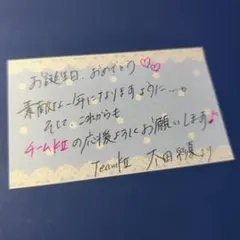 お誕生日 おめでとう♡♡
素敵な一年になりますように…。
そして、これからも
チームKⅡの応援よろしくお願いします♪
TeamKⅡ 太田彩夏より